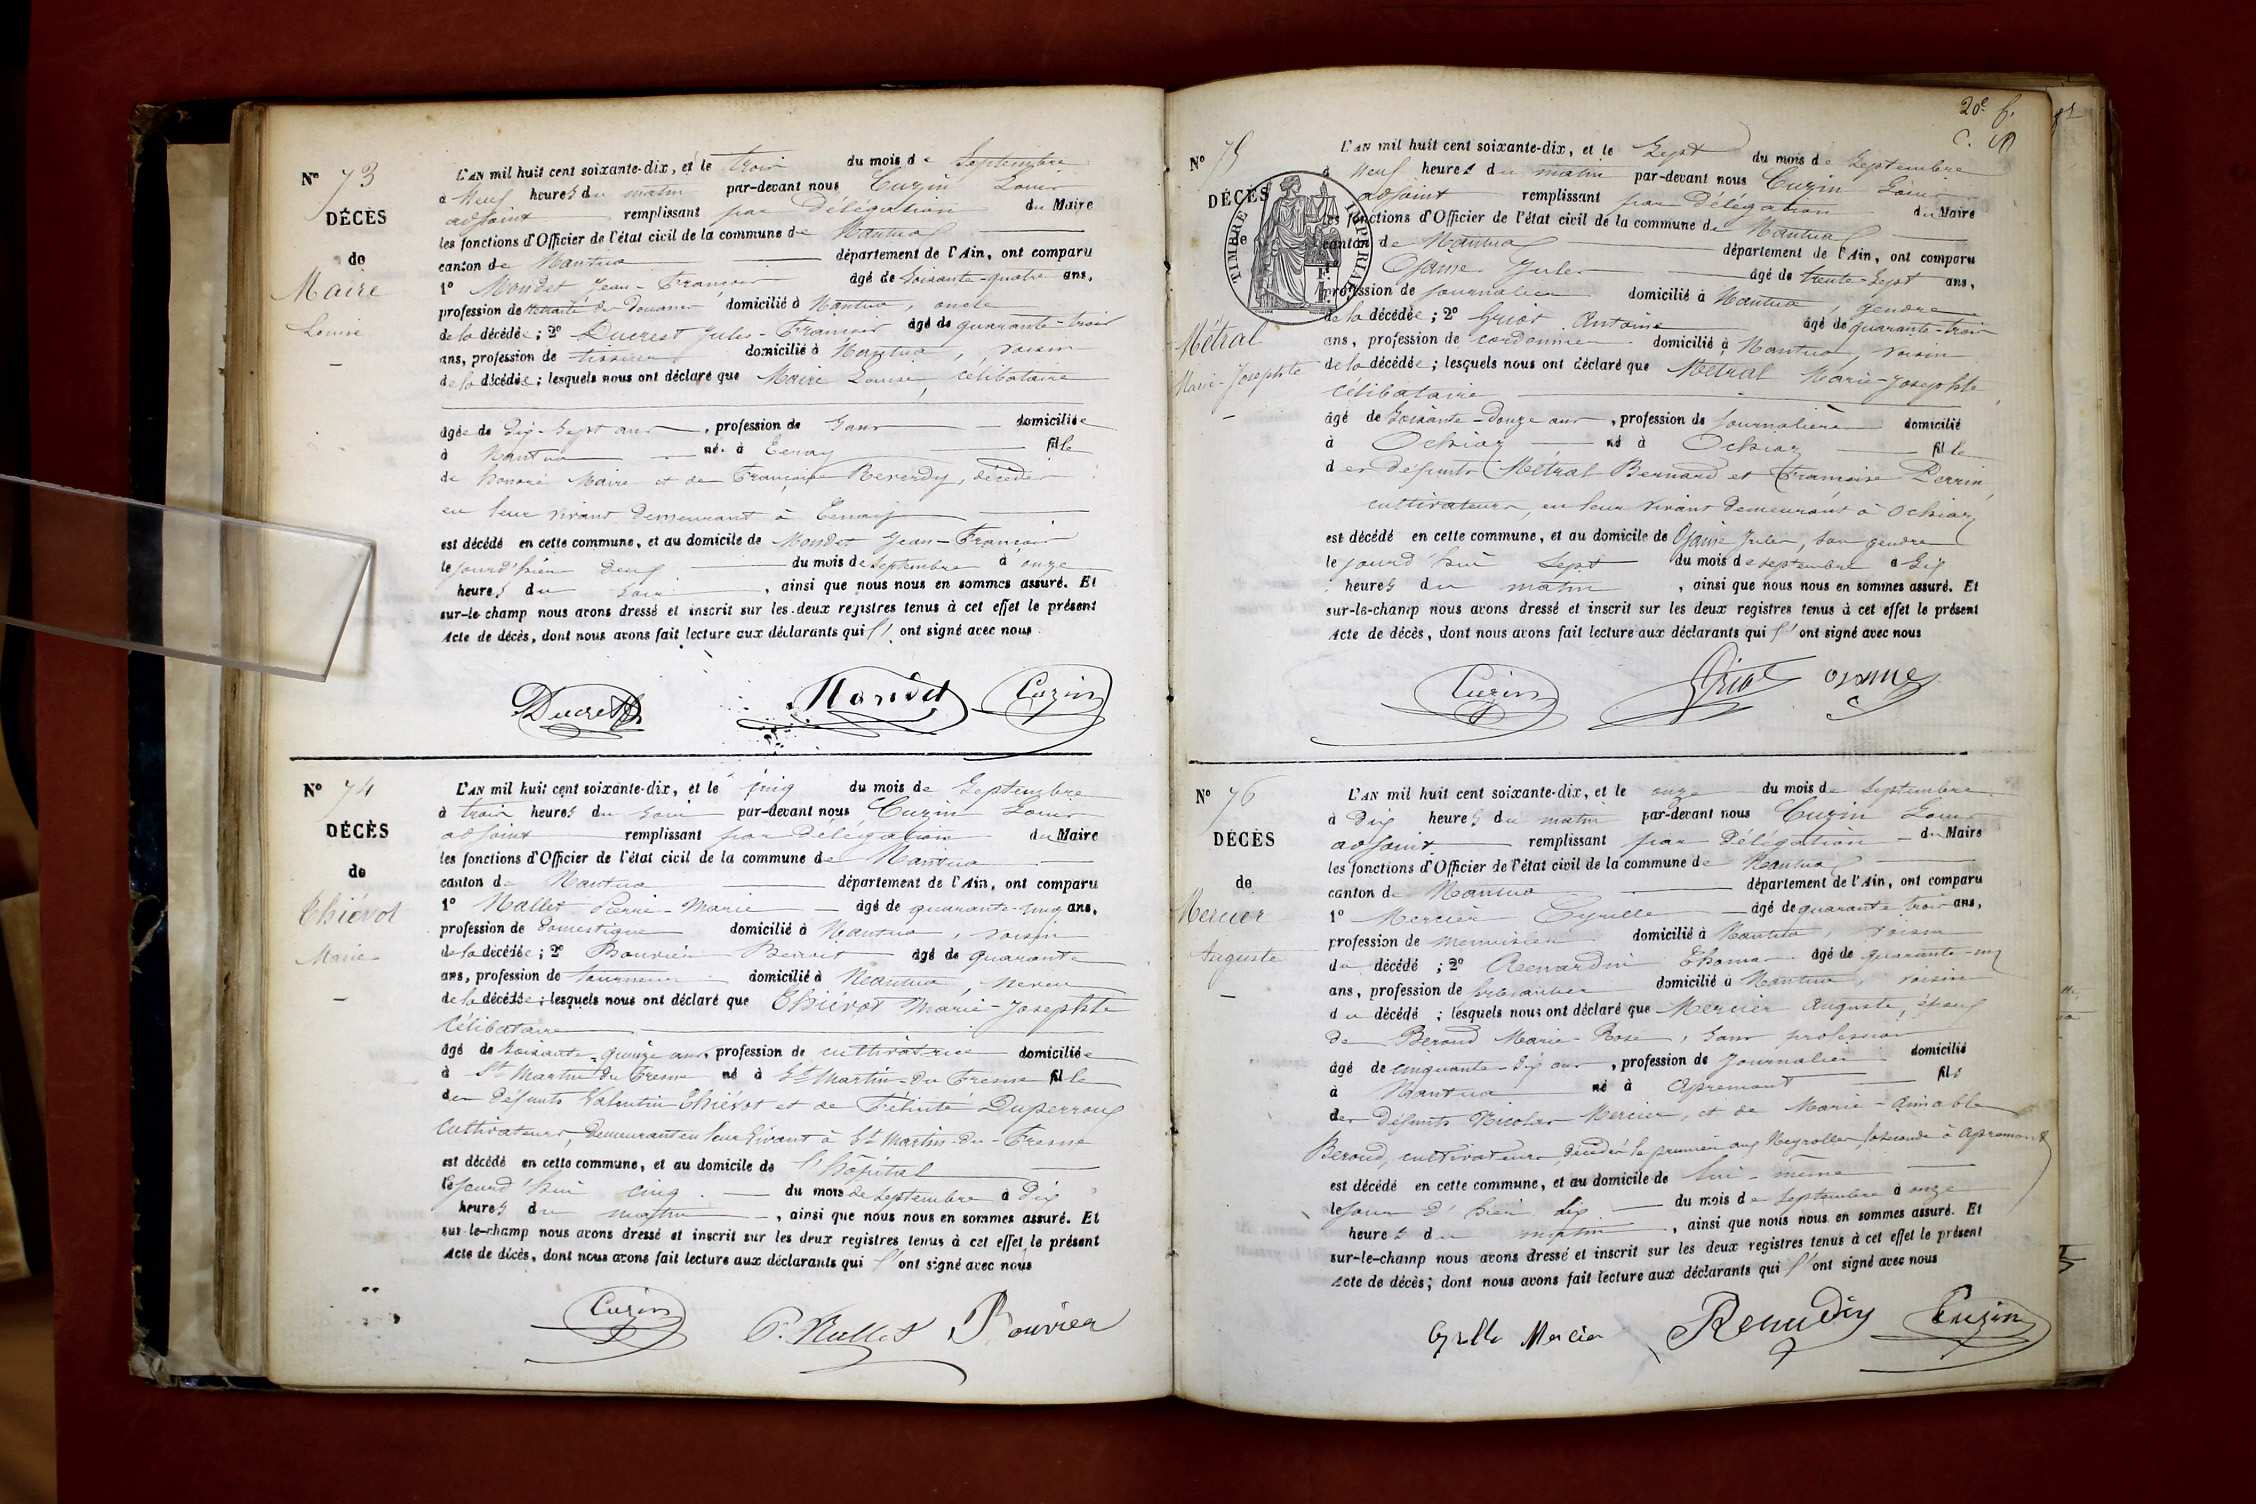 Nº 73
DÉCÈS
de
Maire
Louise
L'AN mil huit cent soixante-dix, et le trois du mois de Septembre
à Neuf heures du matin par-devant nous Cuzin Louis
adjoint remplissant par Délégation du Maire
les fonctions d'Officier de l'état civil de la commune de Nantua
canton de Nantua département de l'Ain, ont comparu
1º Mondet Jean-François âgé de Soixante-quatre ans,
profession de retraité des Douanes domicilié à Nantua, oncle
de la décédée; 2º Ducrest Jules-François âgé de quarante-trois
ans, profession de tisseur domicilié à Nantua, voisin
de la décédée; lesquels nous ont déclaré que Maire Louise, célibataire
âgée de Dix-Sept ans, profession de Sans domiciliée
à Nantua né à Tenay fille
de honoré Maire et de Françoise Reverdy, décédés
en leur vivant demeurant à Tenay
est décédé en cette commune, et au domicile de Mondet Jean-François
le jourd'hier deux du mois de Septembre à onze
heures du Soir, ainsi que nous nous en sommes assuré. Et
sur-le-champ nous avons dressé et inscrit sur les deux registres tenus à cet effet le présent
Acte de décès, dont nous avons fait lecture aux déclarants qui l' ont signé avec nous
Ducrest Mondet Cuzin
Nº 74
DÉCÈS
de
Thiévot
Marie
L'AN mil huit cent soixante-dix, et le cinq du mois de Septembre
à trois heures du Soir par-devant nous Cuzin Louis
adjoint remplissant par Délégation du Maire
les fonctions d'Officier de l'état civil de la commune de Nantua
canton de Nantua département de l'Ain, ont comparu
1º Mallet Pierre-Marie âgé de quarante-cinq ans,
profession de Domestique domicilié à Nantua, voisin
de la décédée; 2º Bouvier Benoit âgé de quarante
ans, profession de tourneur domicilié à Nantua, neveu
de la décédée; lesquels nous ont déclaré que Thiévot Marie-Josephte
Célibataire
âgé de Soixante-quinze ans, profession de cultivatrice domiciliée
à St Martin du Fresne né à St Martin-du Fresne fille
des défunts Valentin Thiévot et de Félicité Duperroux
Cultivateurs, demeurant en leur vivant à St Martin-du-Fresne
est décédé en cette commune, et au domicile de l'hôpital
le jourd'hui cinq du mois de Septembre à Dix
heures du matin, ainsi que nous nous en sommes assuré. Et
sur-le-champ nous avons dressé et inscrit sur les deux registres tenus à cet effet le présent
Acte de décès, dont nous avons fait lecture aux déclarants qui l' ont signé avec nous
Cuzin P. Mallet Bouvier
20e f.
Nº 75
DÉCÈS
de
TIMBRE IMPÉRIAL
Métral
Marie-Josephte
L'AN mil huit cent soixante-dix, et le Sept du mois de Septembre
à Neuf heures du matin par-devant nous Cuzin Louis
adjoint remplissant par Délégation du Maire
les fonctions d'Officier de l'état civil de la commune de Nantua
canton de Nantua département de l'Ain, ont comparu
Ojame Jules âgé de trente-Sept ans,
profession de Journalier domicilié à Nantua, gendre
de la décédée; 2º Griot Antoine âgé de quarante-trois
ans, profession de cordonnier domicilié à Nantua, voisin
de la décédée; lesquels nous ont déclaré que Métral Marie-Josephte
célibataire
âgé de Soixante-Douze ans, profession de Journalière domicilié
à Ochiaz né à Ochiaz fille
des défunts Métral Bernard et Françoise Perrin,
cultivateurs, en leur vivant demeurant à Ochiaz
est décédé en cette commune, et au domicile de Ojame Jules, Son gendre
le jourd'hui Sept du mois de Septembre à Six
heures du matin, ainsi que nous nous en sommes assuré. Et
sur-le-champ nous avons dressé et inscrit sur les deux registres tenus à cet effet le présent
Acte de décès, dont nous avons fait lecture aux déclarants qui l' ont signé avec nous
Cuzin Griot
Nº 76
DÉCÈS
de
Mercier
Auguste
L'AN mil huit cent soixante-dix, et le onze du mois de Septembre
à Dix heures du matin par-devant nous Cuzin Louis
adjoint remplissant par Délégation du Maire
les fonctions d'Officier de l'état civil de la commune de Nantua
canton de Nantua département de l'Ain, ont comparu
1º Mercier Cyrille âgé de quarante trois ans,
profession de menuisier domicilié à Nantua, voisin
du décédé; 2º Renardin Thomas âgé de quarante-un
ans, profession de ferblantier domicilié à Nantua, voisin
du décédé; lesquels nous ont déclaré que Mercier Auguste, époux
de Béroud Marie-Rose, Sans profession
âgé de cinquante-Six ans, profession de Journalier domicilié
à Nantua né à Apremont fils
des défunts Nicolas Mercier, et de Marie-Aimable
Beroud, cultivateurs, décédés le premier aux Neyrolles, la seconde à Apremont
est décédé en cette commune, et au domicile de lui-même
le jour d'hier dix du mois de Septembre à onze
heures du matin, ainsi que nous nous en sommes assuré. Et
sur-le-champ nous avons dressé et inscrit sur les deux registres tenus à cet effet le présent
Acte de décès; dont nous avons fait lecture aux déclarants qui l' ont signé avec nous
Cyrille Mercier Cuzin